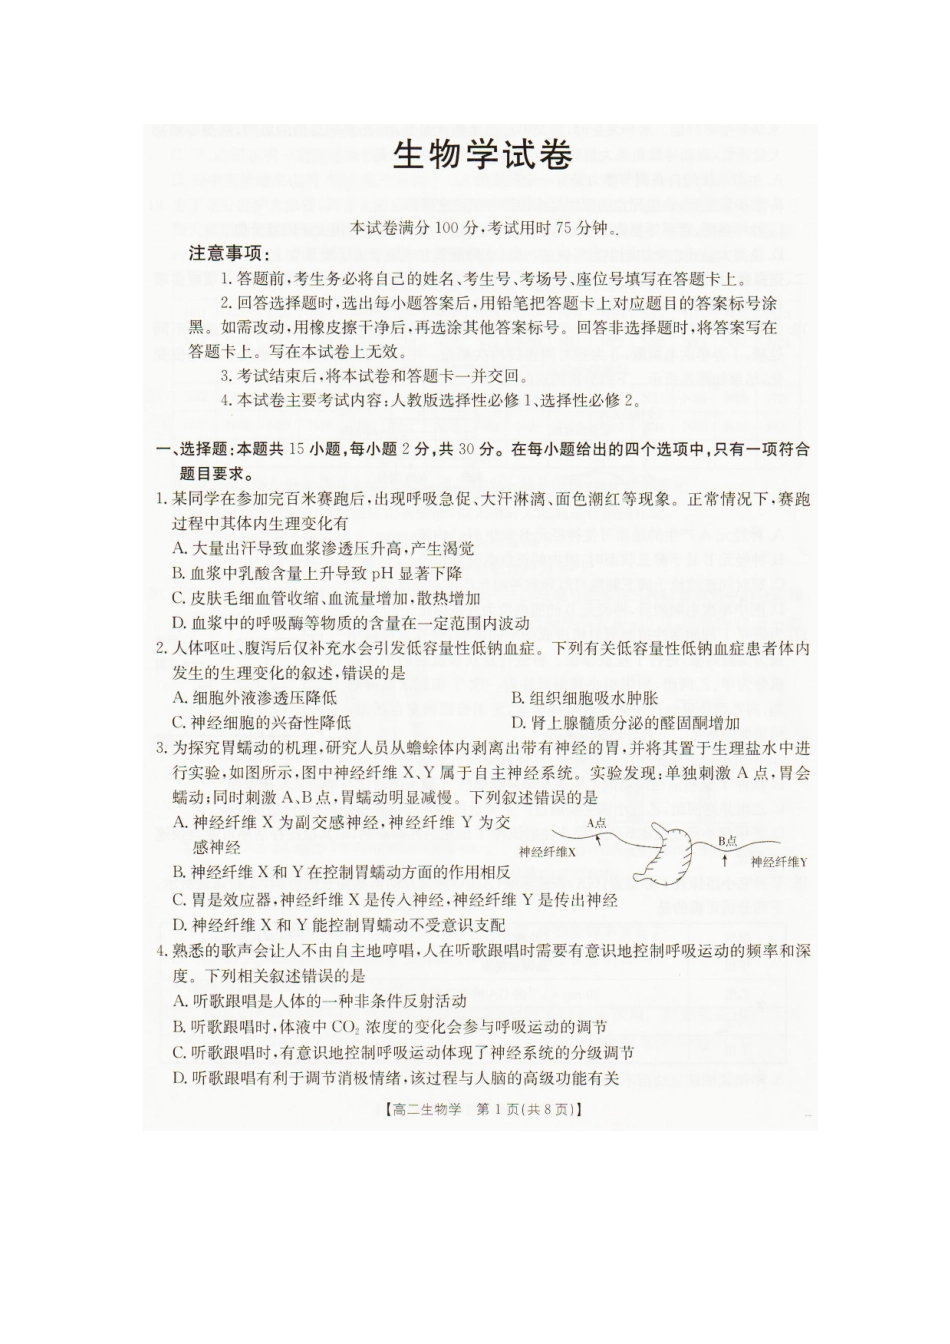 生物学试卷
本试卷满分 100 分,考试用时 75 分钟。
注意事项:
1. 答题前,考生务必将自己的姓名、考生号、考场号、座位号填写在答题卡上。
2. 回答选择题时,选出每小题答案后,用铅笔把答题卡上对应题目的答案标号涂
黑。如需改动,用橡皮擦干净后,再选涂其他答案标号。回答非选择题时,将答案写在
答题卡上。写在本试卷上无效。
3. 考试结束后,将本试卷和答题卡一并交回。
4. 本试卷主要考试内容:人教版选择性必修 1、选择性必修 2。
一、选择题:本题共 15 小题,每小题 2 分,共 30 分。在每小题给出的四个选项中,只有一项符合
题目要求。
1. 某同学在参加完百米赛跑后,出现呼吸急促、大汗淋漓、面色潮红等现象。正常情况下,赛跑
过程中其体内生理变化有
A. 大量出汗导致血浆渗透压升高,产生渴觉
B. 血浆中乳酸含量上升导致 pH 显著下降
C. 皮肤毛细血管收缩、血流量增加,散热增加
D. 血浆中的呼吸酶等物质的含量在一定范围内波动
2. 人体呕吐、腹泻后仅补充水会引发低容量性低钠血症。下列有关低容量性低钠血症患者体内
发生的生理变化的叙述,错误的是
A. 细胞外液渗透压降低 B. 组织细胞吸水肿胀
C. 神经细胞的兴奋性降低 D. 肾上腺髓质分泌的醛固酮增加
3. 为探究胃蠕动的机理,研究人员从蟾蜍体内剥离出带有神经的胃,并将其置于生理盐水中进
行实验,如图所示,图中神经纤维 X、Y 属于自主神经系统。实验发现:单独刺激 A 点,胃会
蠕动;同时刺激 A、B 点,胃蠕动明显减慢。下列叙述错误的是
A. 神经纤维 X 为副交感神经,神经纤维 Y 为交
感神经
A点
B点
神经纤维X
神经纤维Y
B. 神经纤维 X 和 Y 在控制胃蠕动方面的作用相反
C. 胃是效应器,神经纤维 X 是传入神经,神经纤维 Y 是传出神经
D. 神经纤维 X 和 Y 能控制胃蠕动不受意识支配
4. 熟悉的歌声会让人不由自主地哼唱,人在听歌跟唱时需要有意识地控制呼吸运动的频率和深
度。下列相关叙述错误的是
A. 听歌跟唱是人体的一种非条件反射活动
B. 听歌跟唱时,体液中 CO₂ 浓度的变化会参与呼吸运动的调节
C. 听歌跟唱时,有意识地控制呼吸运动体现了神经系统的分级调节
D. 听歌跟唱有利于调节消极情绪,该过程与人脑的高级功能有关
【高二生物学 第 1 页(共 8 页)】